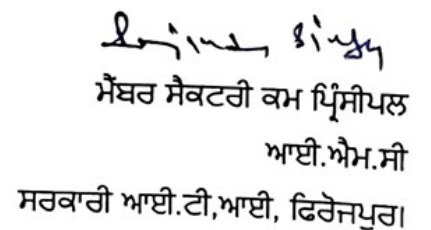 ਮੈਂਬਰ ਸੈਕਟਰੀ ਕਮ ਪ੍ਰਿੰਸੀਪਲ
ਆਈ.ਐਮ.ਸੀ
ਸਰਕਾਰੀ ਆਈ.ਟੀ,ਆਈ, ਫਿਰੋਜਪੁਰ।